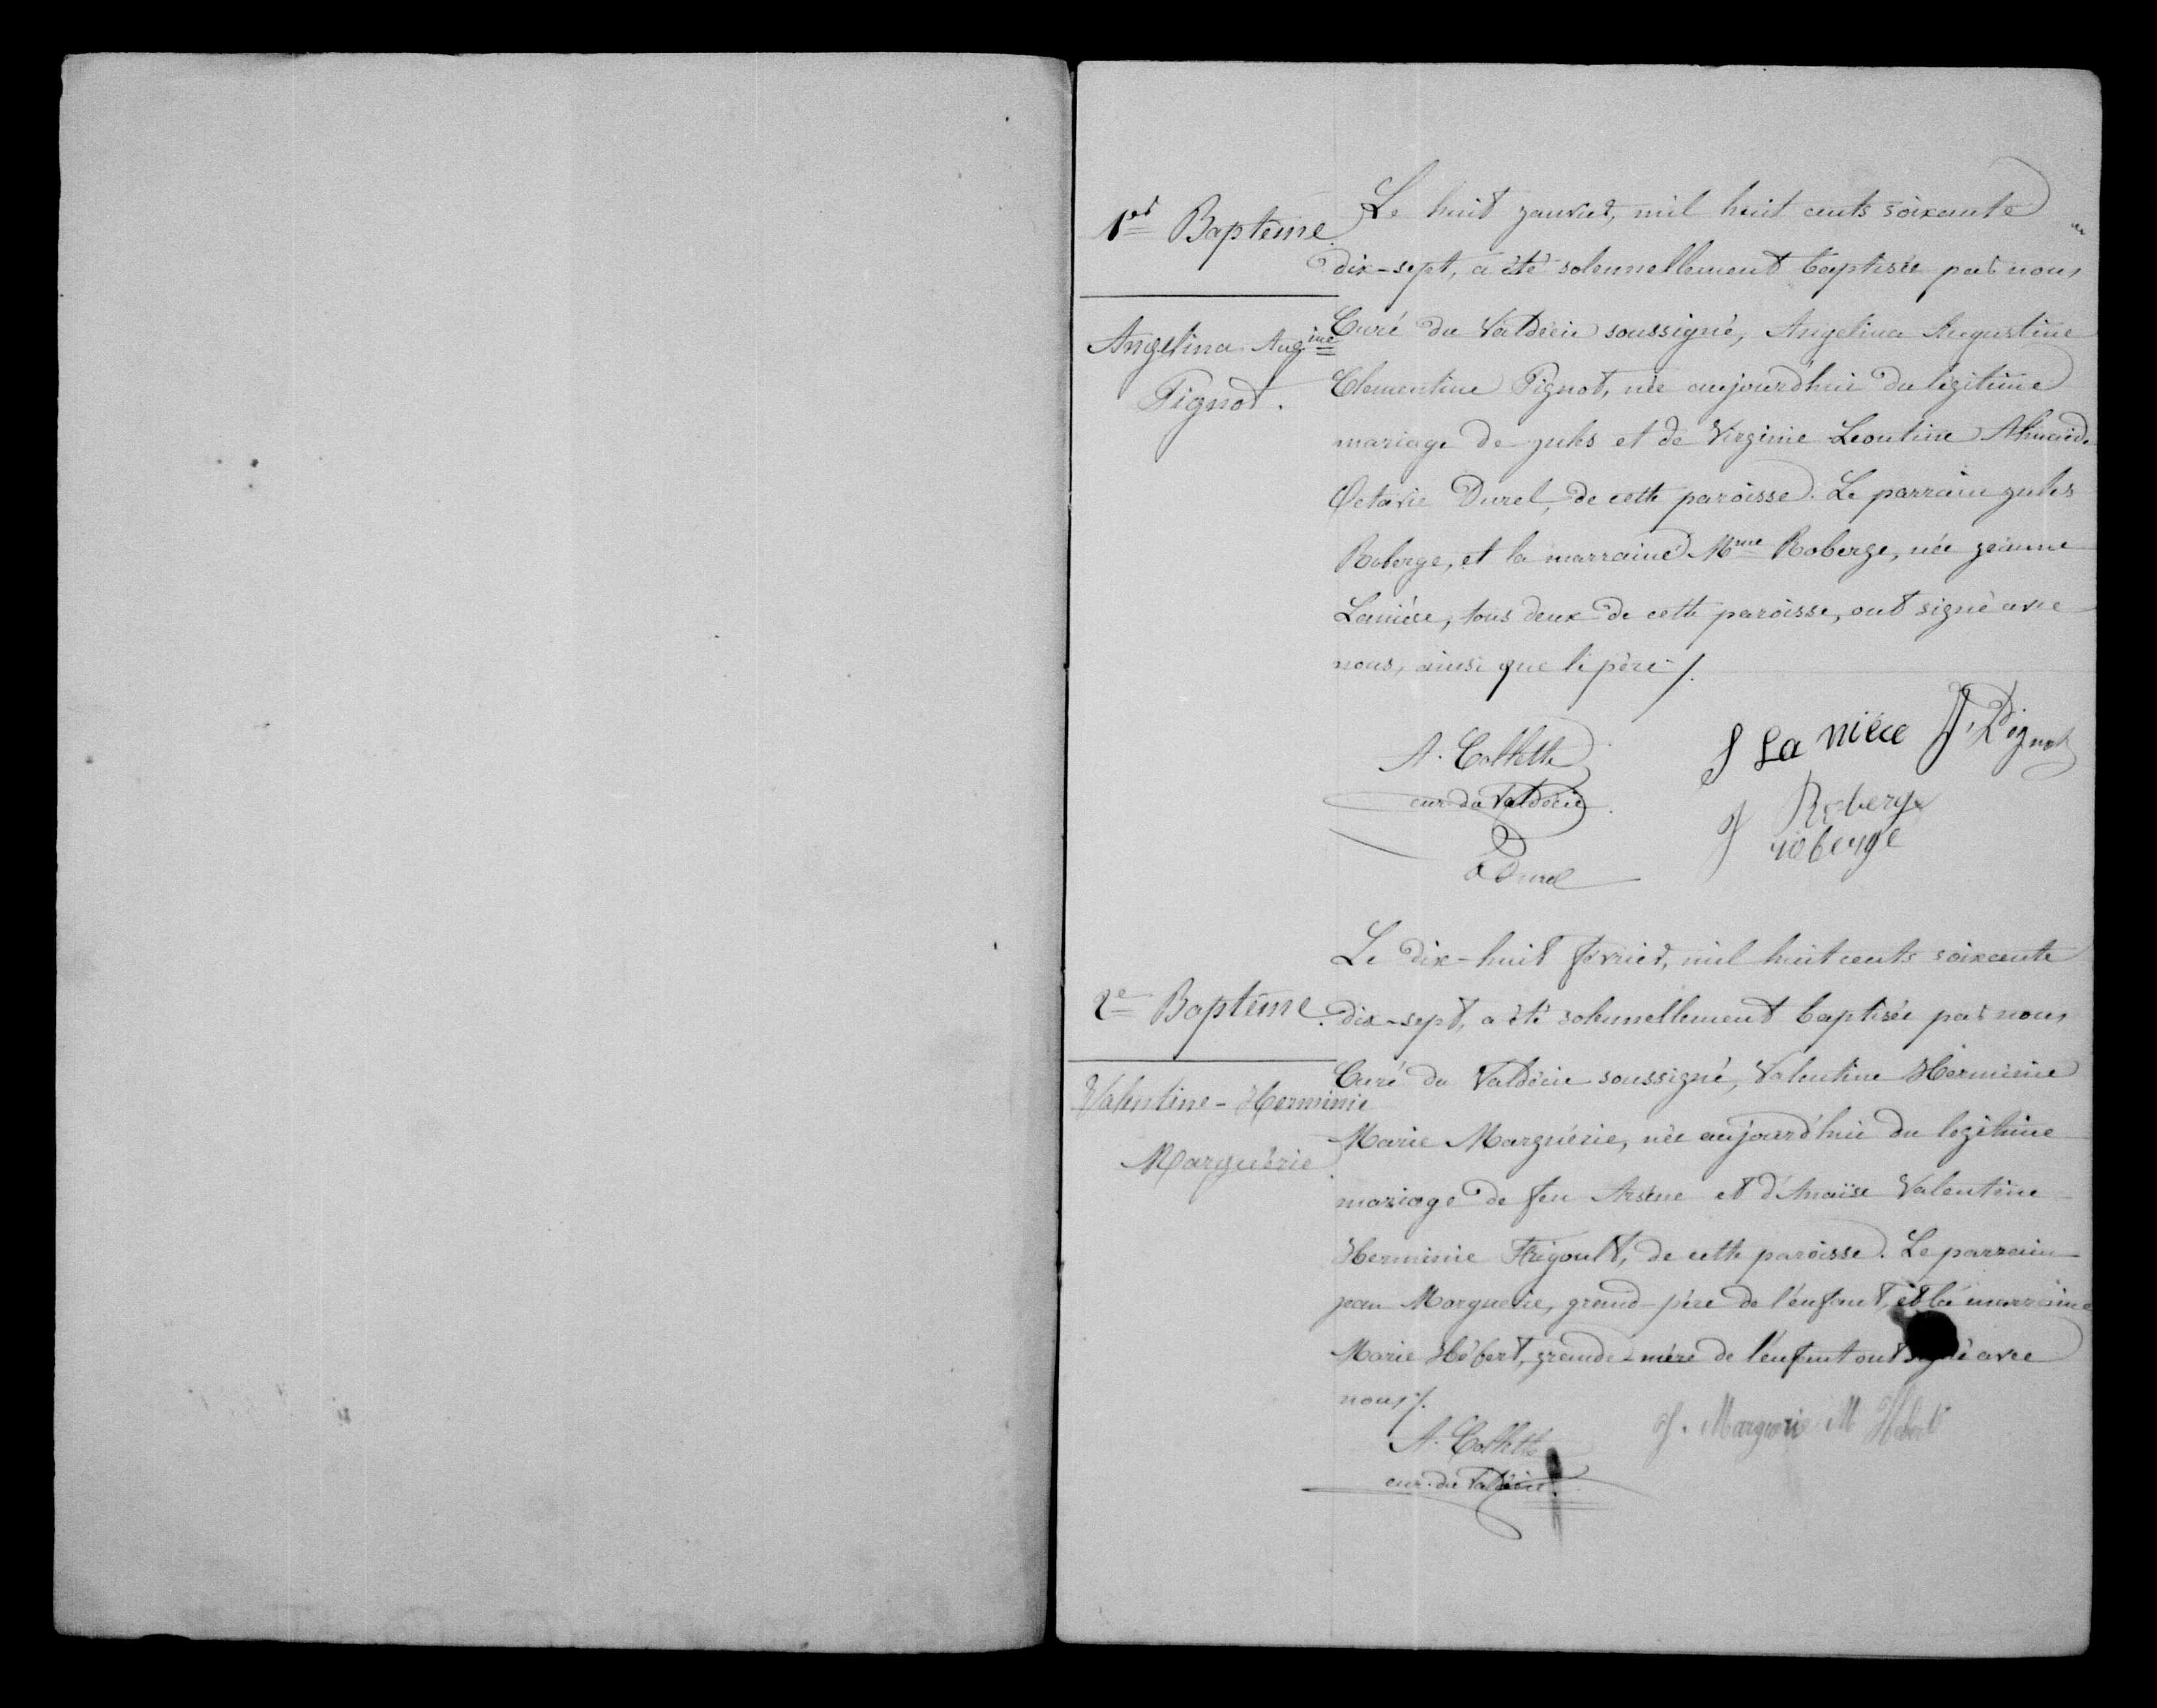 1er Baptême
Angelina Augine
Pignot.
Le huit janvier, mil huit cents soixante
dix-sept, a été solennellement baptisée par nous,
Curé du Valdécie soussigné, Angelina Augustine
Clementine Pignot, née aujourd'hui du légitime
mariage de jules et de Virginie Leontine
Octavie Durel, de cette paroisse. Le parrain jules
Roberge, et la marraine Mme Roberge, née jeanne
Lanièce, tous deux de cette paroisse, ont signé avec
nous, ainsi que le père /.
A. Collette
cur. du Valdécie
J La nièce J. Pignot
J Roberge
J roberge
Durel
2e Baptême.
Valentine-Herminie
Marguerie.
Le dix-huit février, mil huit cents soixante
dix-sept, a été solennellement baptisée par nous,
Curé du Valdécie soussigné, Valentine Herminie
Marie Marguerie, née aujourd'hui du legitime
mariage de feu Arsène et d'Anaïse Valentine
Herminie Frigoult, de cette paroisse. Le parrain
jean Marguerie, grand-père de l'enfant, et la marraine
Marie Hébert, grande-mère de l'enfant ont signé avec
nous /.
A. Collette
cur. du Valdécie.
J. Marguerie M Hebert